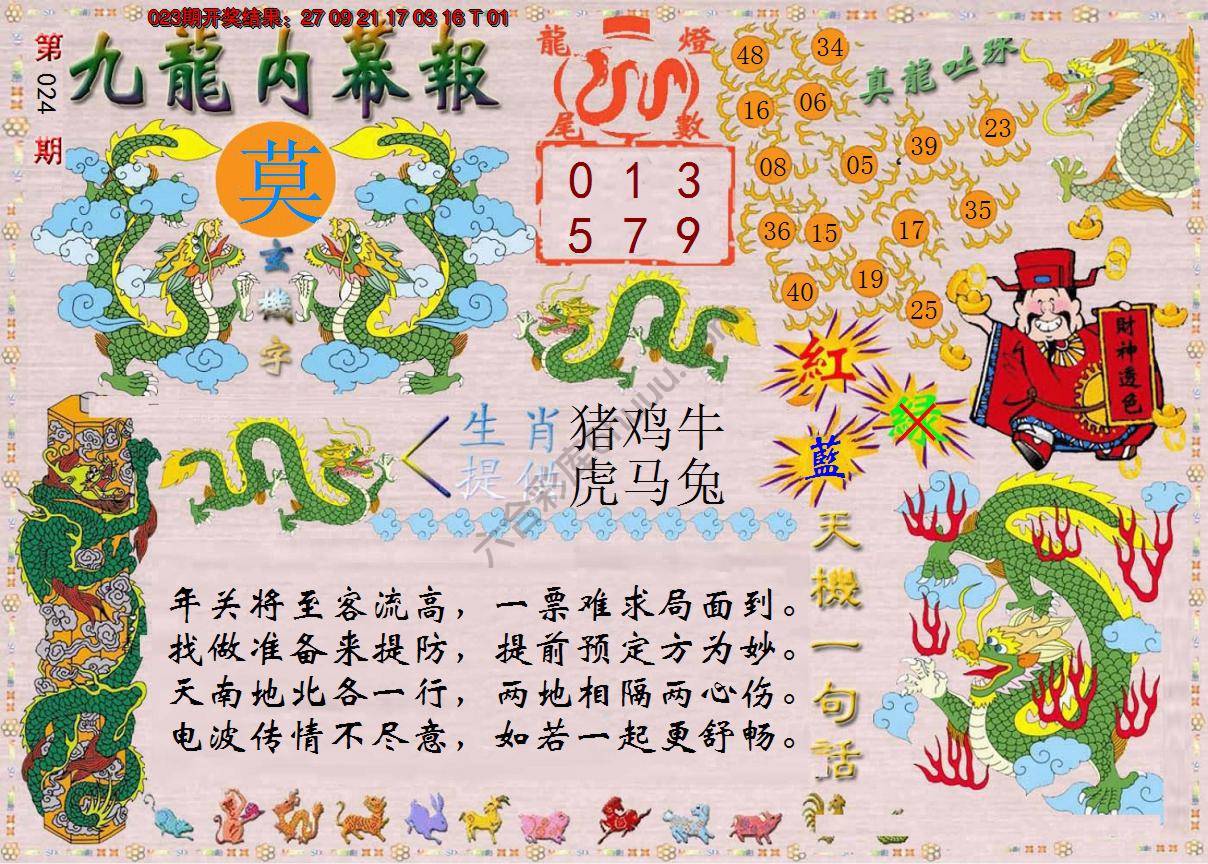 023期开奖结果：27 09 21 17 03 16 T 01
第024期
九龍内幕報
莫
玄機字
龍燈尾數
0 1 3
5 7 9
真龍吐珠
48 34
16 06
39 23
08 05
36 15 17 35
40 19 25
紅
绿
藍
財神透色
生肖提供
猪鸡牛
虎马兔
天機一句话
年关将至客流高，一票难求局面到。
找做准备来提防，提前预定方为妙。
天南地北各一行，两地相隔两心伤。
电波传情不尽意，如若一起更舒畅。